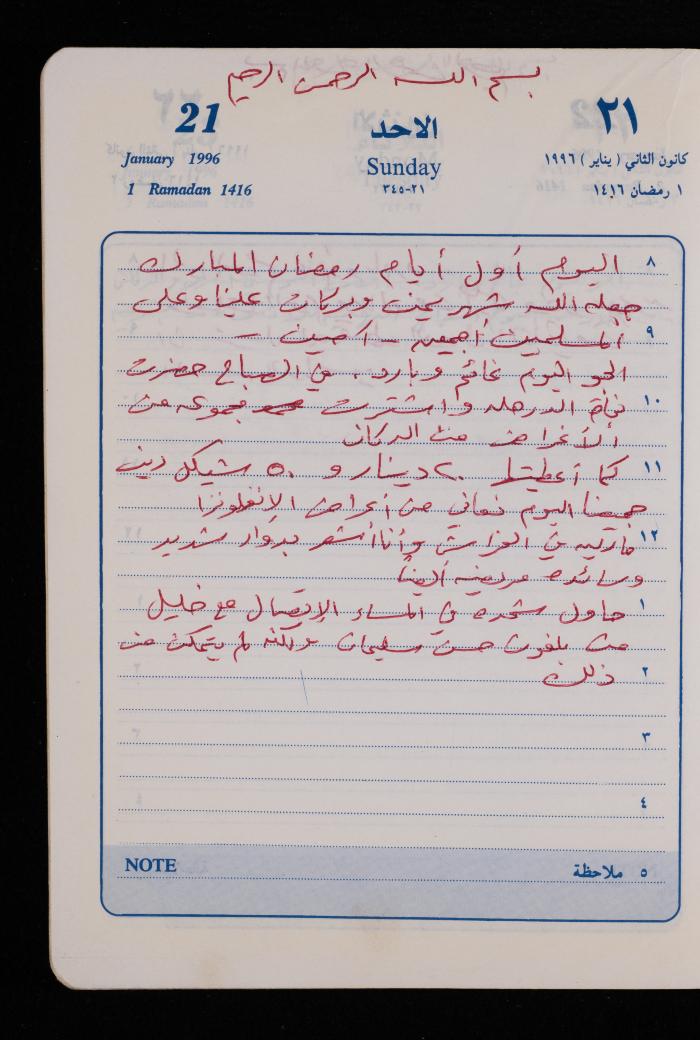 بسم الله الرحمن الرحيم
21 الاحد ٢١
January 1996 Sunday كانون الثاني ( يناير ) ١٩٩٦
1 Ramadan 1416 ٢١-٣٤٥ ١ رمضان ١٤١٦
٨ اليوم أول أيام رمضان المبارك
جعله الله شهر يمن وبركات علينا وعلى
٩ المسلمين أجمعين - آمين -
الجو اليوم غائم وبارد . في الصباح حضرت
١٠ واشترت مجموعه من
الأغراض من الدكان
١١ كما أعطيتها ٢٠ دينار و ٥٠ شيكل دين
جميعنا اليوم نعاني من أعراض الإنفلونزا
١٢ في الفراش وأنا أشعر بدوار شديد
وسائده مريضه أيضاً
١ حاول شحده في المساء الإتصال مع خليل
من بلفون حسن سليمان ولكنه لم يتمكن من
٢ ذلك
٣
٤
NOTE ٥ ملاحظة